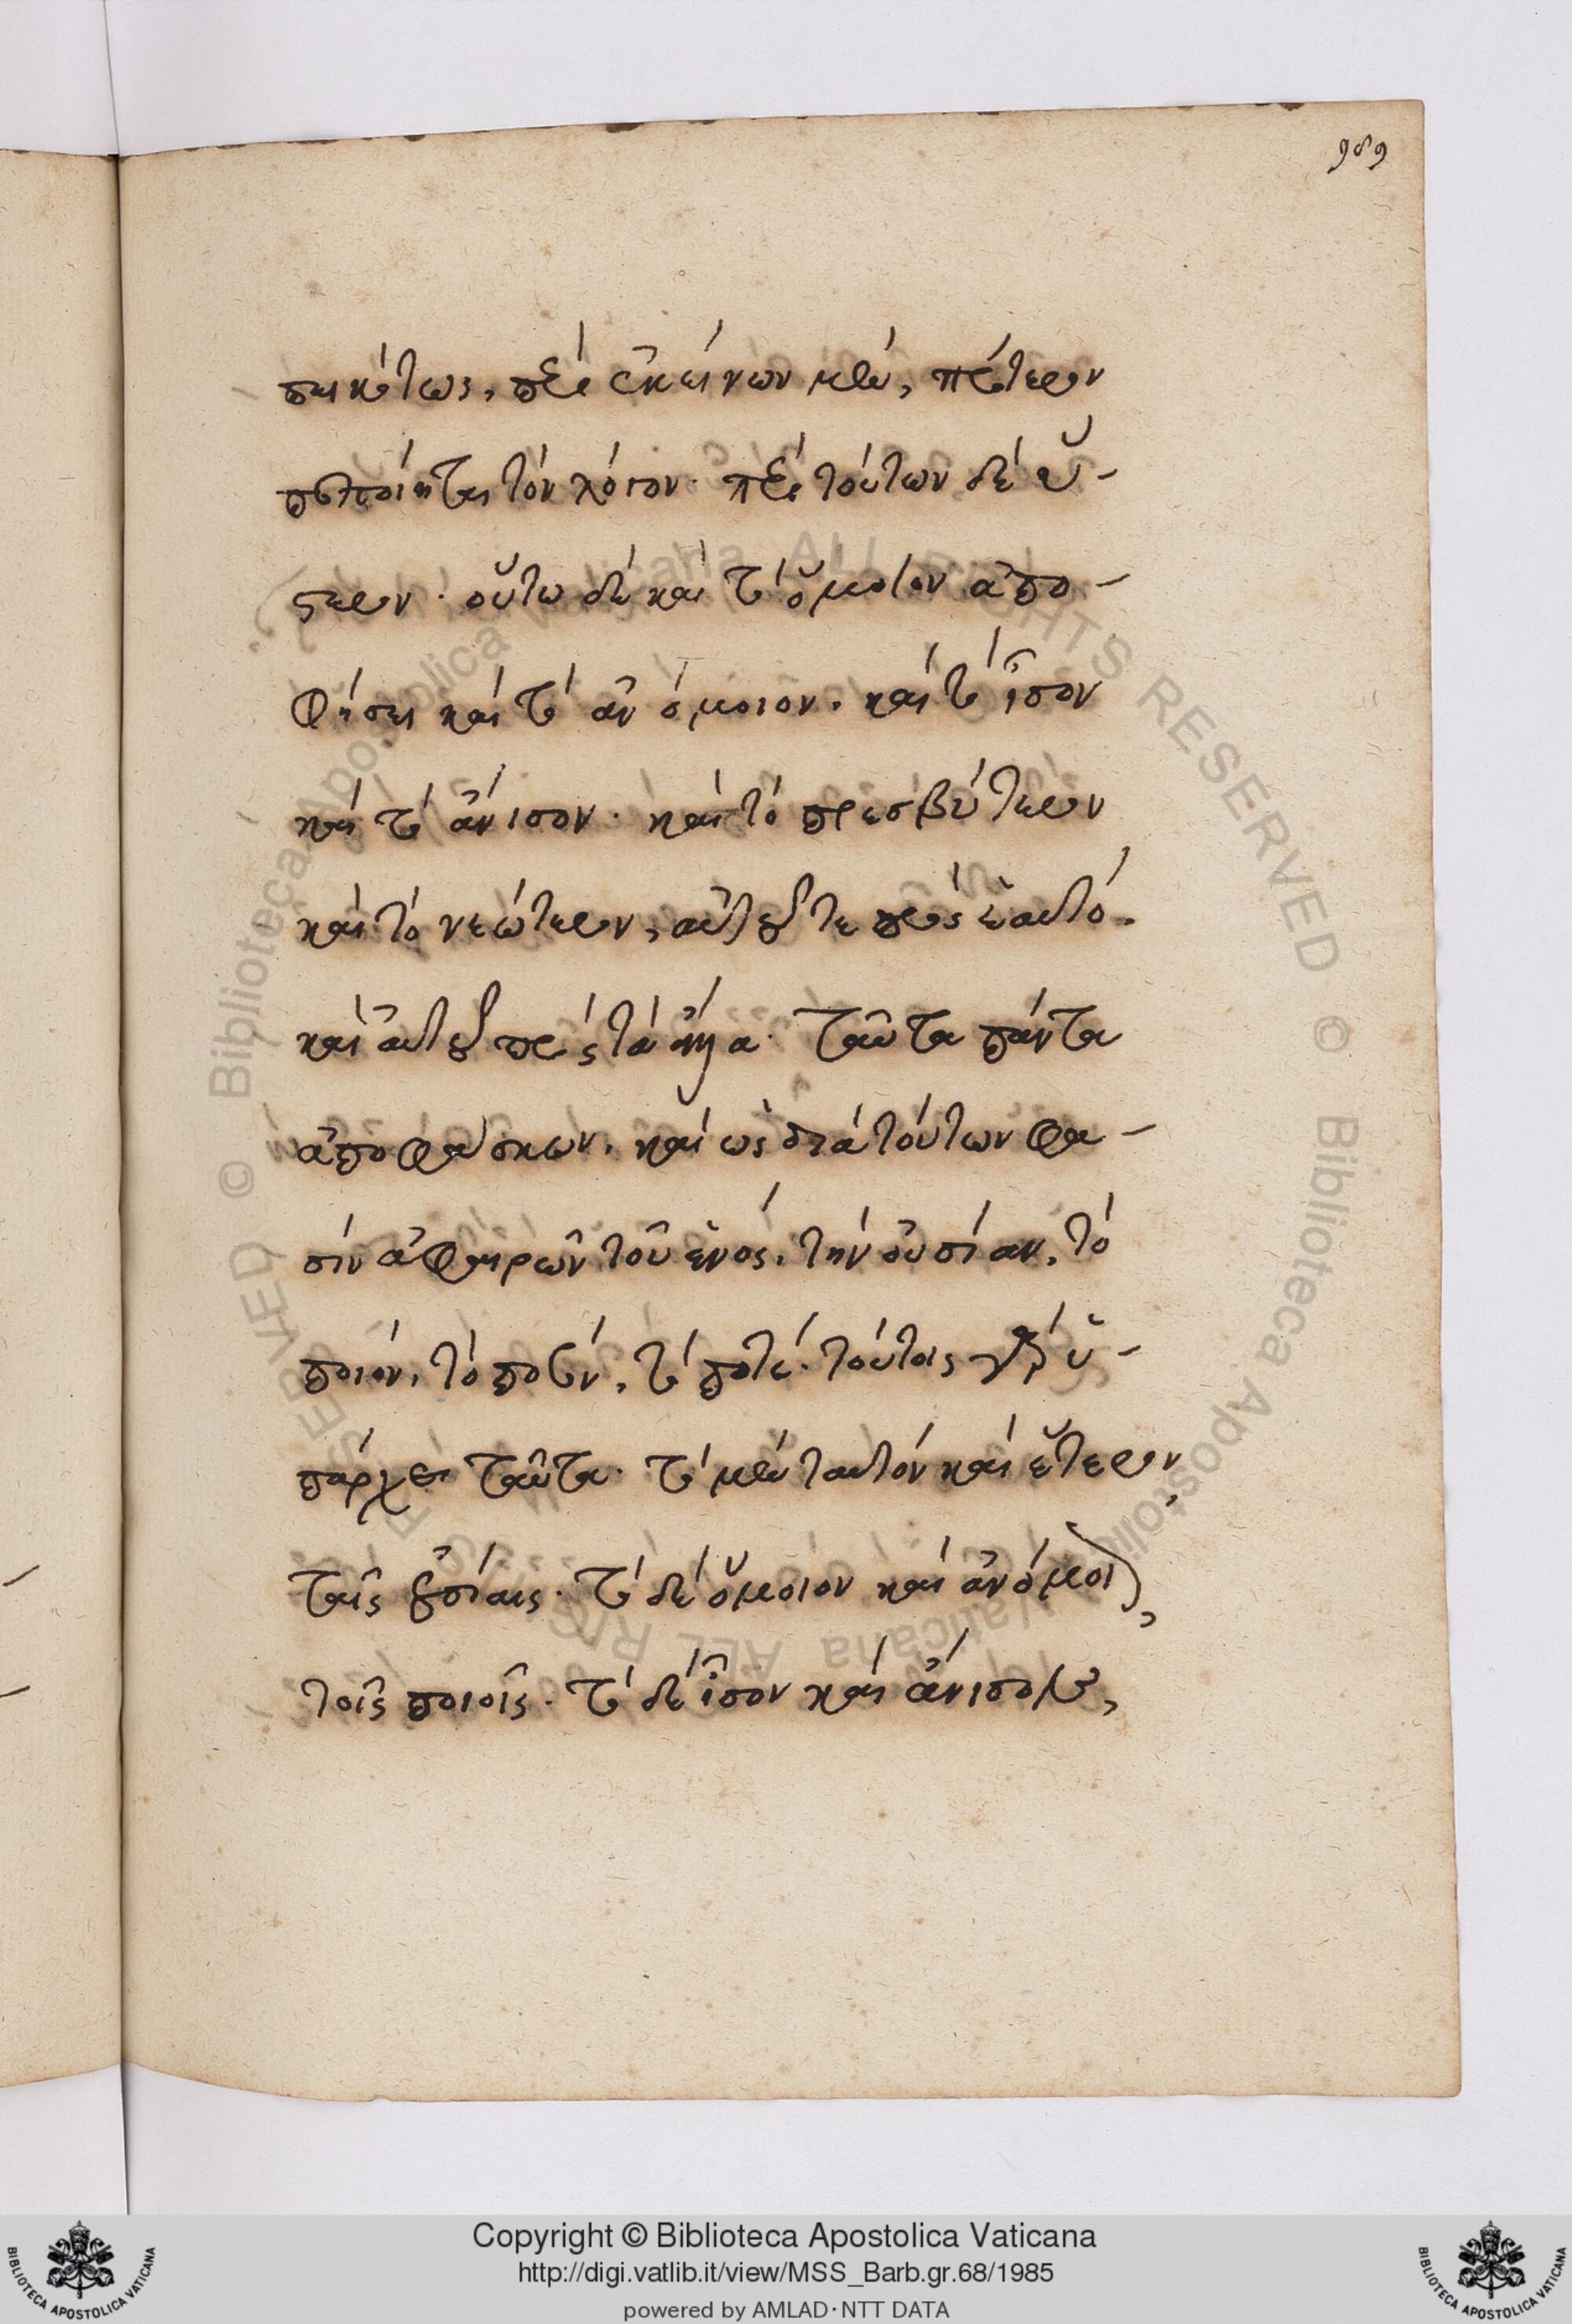 989
πεικότως, περὶ ἐκείνων μὲν, πρότερον
πεποίηται τὸν λόγον· περὶ τούτων δὲ ὕ-
στερον· οὕτω δὲ καὶ τὸ ὅμοιον ἀπο-
φήσει καὶ τὸ ἀνόμοιον· καὶ τὸ ἴσον
καὶ τὸ ἄνισον· καὶ τὸ πρεσβύτερον
καὶ τὸ νεώτερον, αὐτοῦ τε πρὸς ἑαυτό.
καὶ αὐτοῦ πρὸς τὰ ἄλλα· ταῦτα πάντα
ἀποφάσκων. καὶ ὡς διὰ τούτων φα-
σίν ἀφαιρῶν τοῦ ἑνός, τὴν οὐσίαν, τὸ
ποιόν, τὸ ποσόν, τὸ ποτέ· τούτοις γὰρ ὑ-
πάρχει ταῦτα· τὸ μὲν ταυτόν καὶ ἕτερον,
ταῖς οὐσίαις· τὸ δὲ ὅμοιον καὶ ἀνόμοιον,
τοῖς ποιοῖς· τὸ δὲ ἴσον καὶ ἄνισον,
Copyright © Biblioteca Apostolica Vaticana
http://digi.vatlib.it/view/MSS_Barb.gr.68/1985
powered by AMLAD·NTT DATA
BIBLIOTECA APOSTOLICA VATICANA
BIBLIOTECA APOSTOLICA VATICANA
© Biblioteca Apostolica Vaticana ALL RIGHTS RESERVED
© Biblioteca Apostolica Vaticana ALL RIGHTS RESERVED